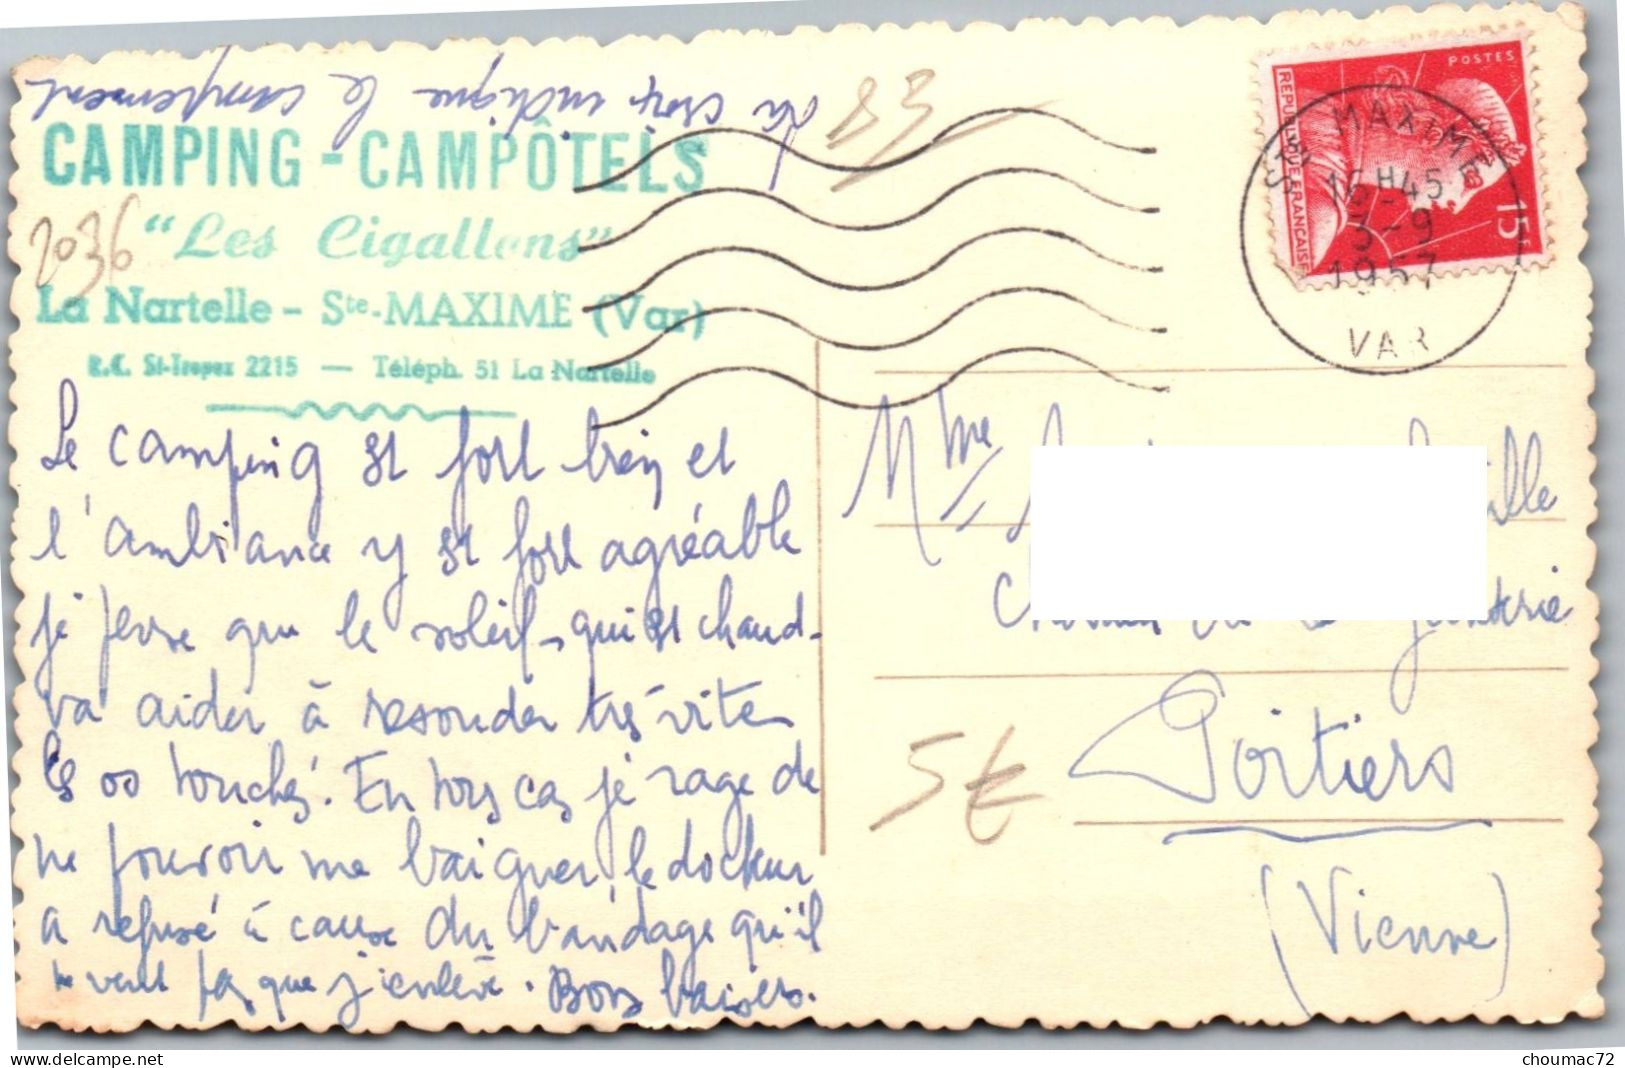 La croix indique le campement
83
CAMPING - CAMPÔTELS
2036
"Les Cigallons"
La Nartelle - Ste-MAXIME (Var)
R.C. St-Tropez 2215 — Téléph. 51 La Nartelle
Le camping est fort bien et
l'ambiance y est fort agréable
je pense que le soleil - qui est chaud -
va aider à resouder très vite
les os touchés. En tous cas je rage de
ne pouvoir me baigner, le docteur
a refusé à cause du bandage qu'il
ne veut pas que j'enlève. Bons baisers.
POSTES
REPUBLIQUE FRANÇAISE
15F
STE MAXIME
16H45
3-9
1957
VAR
Mme
lle
Poitiers
(Vienne)
5€
delcampe.net
choumac72